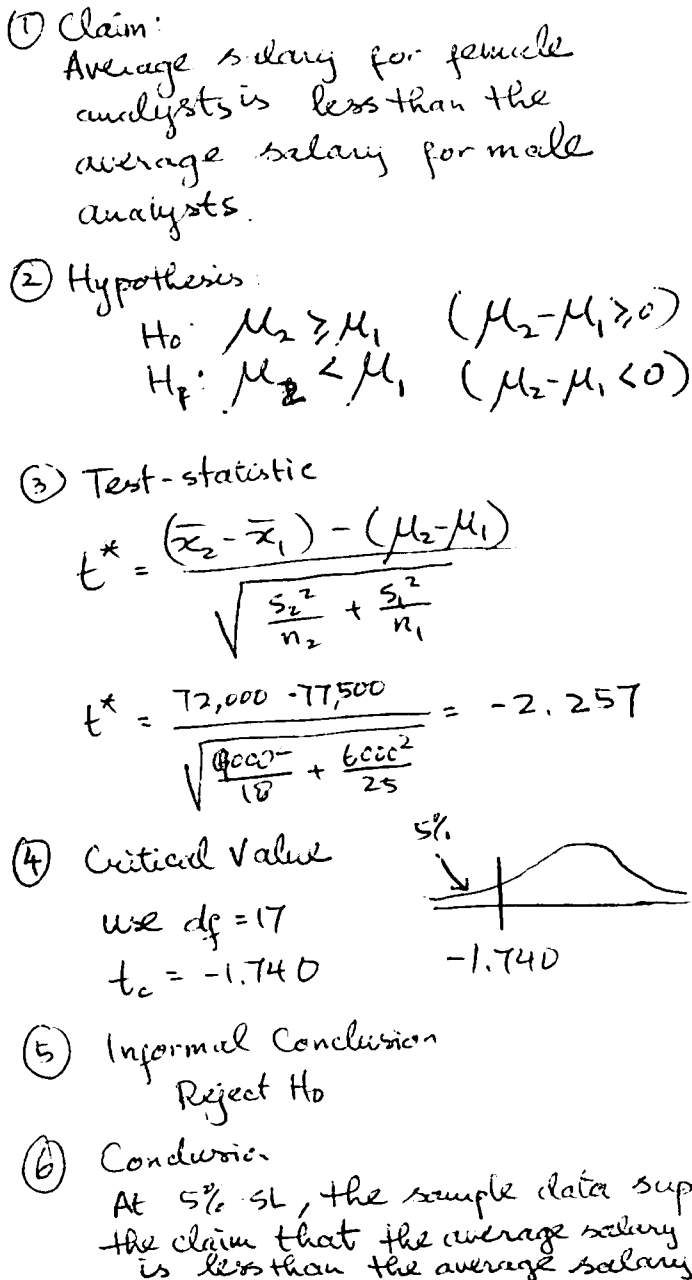 ① Claim:
Average salary for female
analysts is less than the
average salary for male
analysts.
② Hypothesis:
H₀: μ₂ ≥ μ₁ (μ₂-μ₁ ≥ 0)
μ₂ < μ₁ (μ₂-μ₁ < 0)
③ Test-statistic
t* = (x̄₂-x̄₁) - (μ₂-μ₁) / √(s₂²/n₂ + s₁²/n₁)
t* = 72,000 - 77,500 / √( /18 + 6000²/25) = -2.257
④ Critical Value
5%
use df = 17
t_c = -1.740
-1.740
⑤ Informal Conclusion
Reject H₀
⑥ Conclusion
At 5% SL, the sample data sup
the claim that the average salary
is less than the average salary